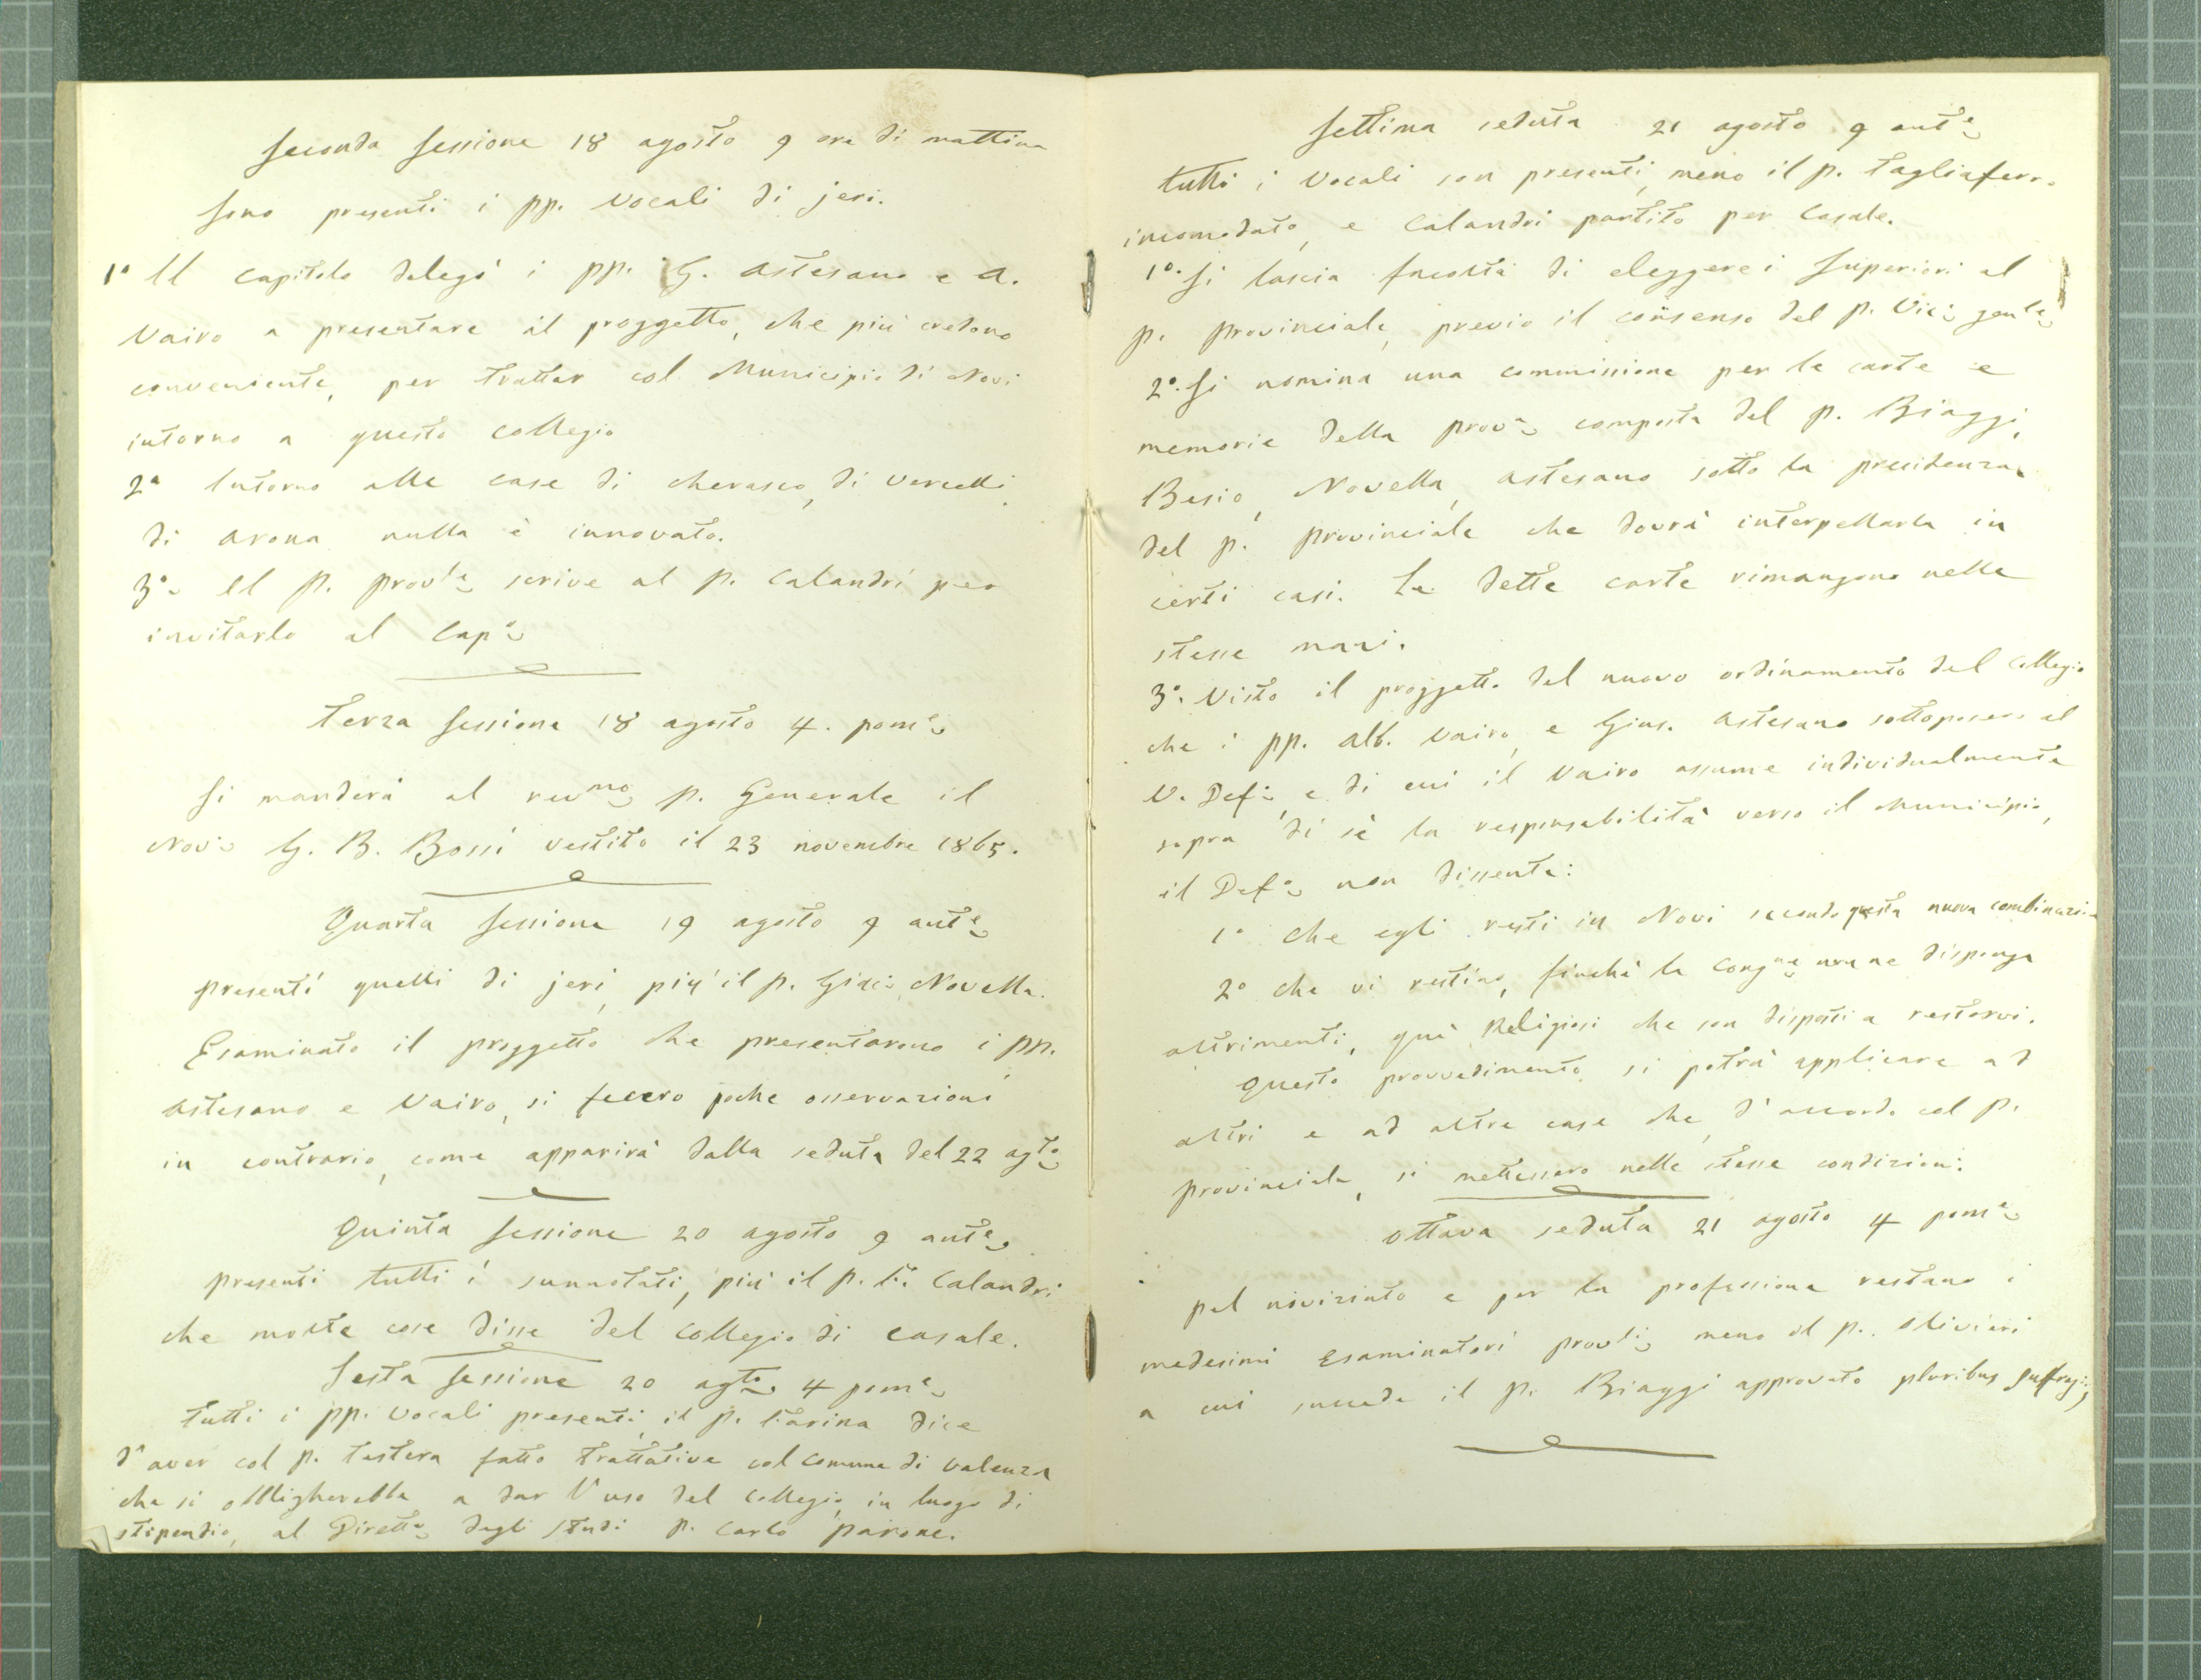 Seconda Sessione 18 agosto 9 ore di mattina
Sono presenti i pp. Vocali di jeri.
1° Il Capitolo delegò i pp. G. Astesano e A.
Vairo a presentare il proggetto, che più credono
conveniente, per trattar col Municipio di Novi
intorno a questo collegio
2° Intorno alle case di Cherasco, di Vercelli,
di Arona nulla è innovato.
3° Il P. provle scrive al p. Calandri per
invitarlo al Capo
Terza Sessione 18 agosto 4. pome
Si manderà al revmo p. Generale il
Novo G. B. Bossi vestito il 23 novembre 1865.
Quarta Sessione 19 agosto 9 ante
presenti quelli di jeri, più il p. Giaco Novella.
Esaminato il proggetto che presentarono i pp.
Astesano e Vairo, si fecero poche osservazioni
in contrario, come apparirà dalla seduta del 22 agto
Quinta Sessione 20 agosto 9 ante
presenti tutti i sunnotati, più il p. Calandri
che molte cose disse del Collegio di Casale.
Sesta Sessione 20 agto 4 pome
Tutti i pp. Vocali presenti, il p. dice
d'aver col p. Testera fatto trattative col Comune di Valenza
che si obbligherebbe a dar l'uso del Collegio, in luogo di
stipendio, al Direttе degli studi p. Carlo Parone.
Settima seduta 21 agosto 9 ante
tutti i Vocali son presenti, meno il p. Tagliaferro
incomodato, e Calandri partito per Casale.
1°. Si lascia facoltà di eleggere i Superiori al
p. Provinciale, previo il consenso del p. Vico genle
2°. Si nomina una commissione per le carte e
memorie della prova composta del p. Biaggi,
Besio, Novella, Astesano sotto la presidenza
del p. Provinciale che dovrà interpellarla in
certi casi. Le dette carte rimangono nelle
stesse mani.
3°. Visto il proggetto del nuovo ordinamento del Collegio
che i pp. Alb. Vairo, e Gius. Astesano sottoposero al
V. Defo, e di cui il Vairo assume individualmente
sopra di sè la responsabilità verso il Municipio,
il Defo non dissente:
1° che egli resti in Novi secondo questa nuova combinazione
2° che vi restino, finchè la Congne non ne disponga
altrimenti, que' Religiosi che son disposti a restarvi.
Questo provvedimento si potrà applicare ad
altri e ad altre case che, d'accordo col p.
Provinciale, si mettessero nelle stesse condizioni.
Ottava seduta 21 agosto 4 pome
pel noviziato e per la professione restano i
medesimi Esaminatori provli meno il p. Olivieri
a cui succede il p. Biaggi approvato pluribus suffragiis